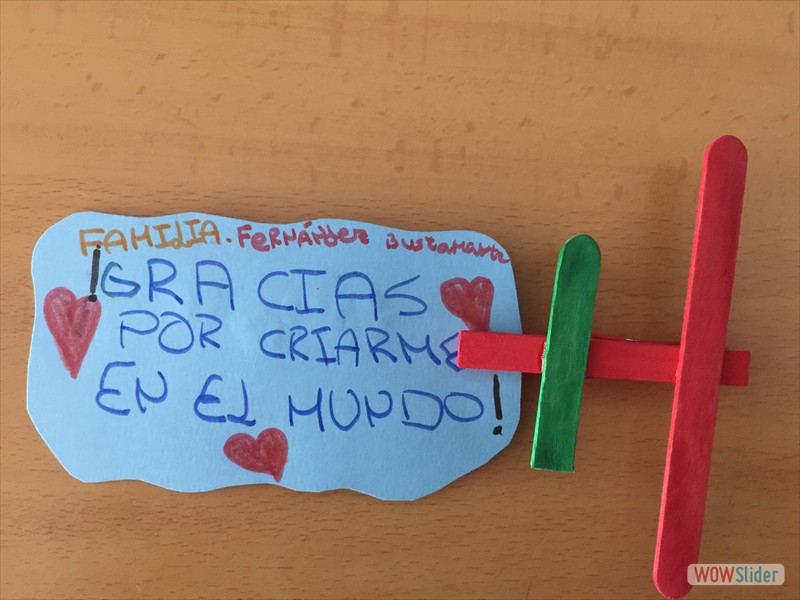 FAMILIA. FERNÁNDEZ BUSTAMANTE
¡GRACIAS
POR CRIARME
EN EL MUNDO!
WOWSlider